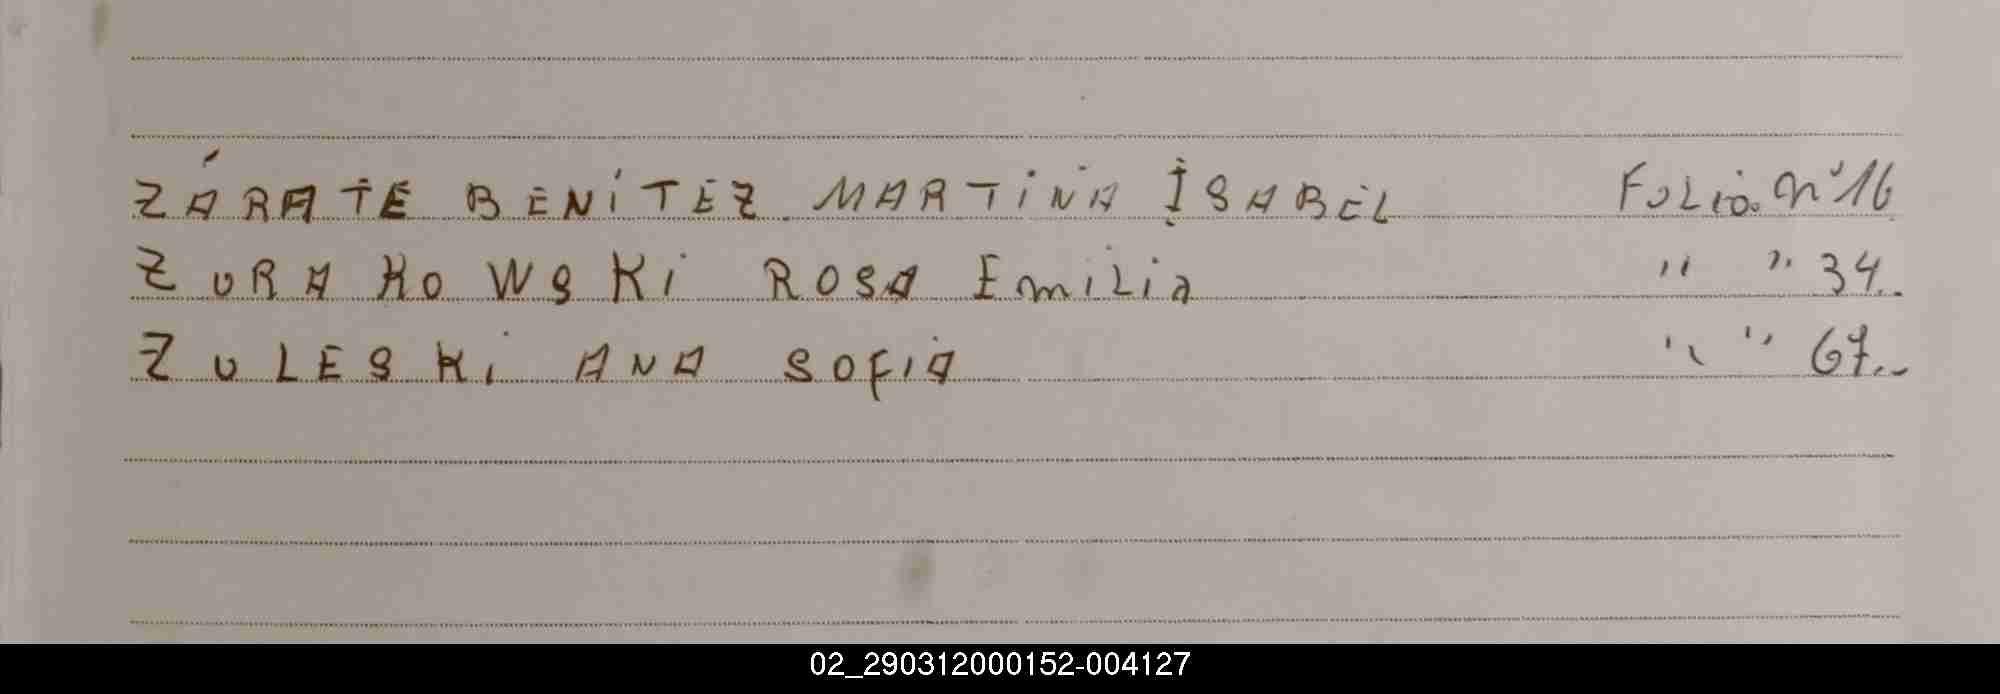 ZÁRATE BENÍTEZ MARTINA ISABEL Folio. Nº 16
ZURAKOWSKI ROSA EmiLia " " 34..
ZULESKI ANA SOFIA " " 67..
02_290312000152-004127